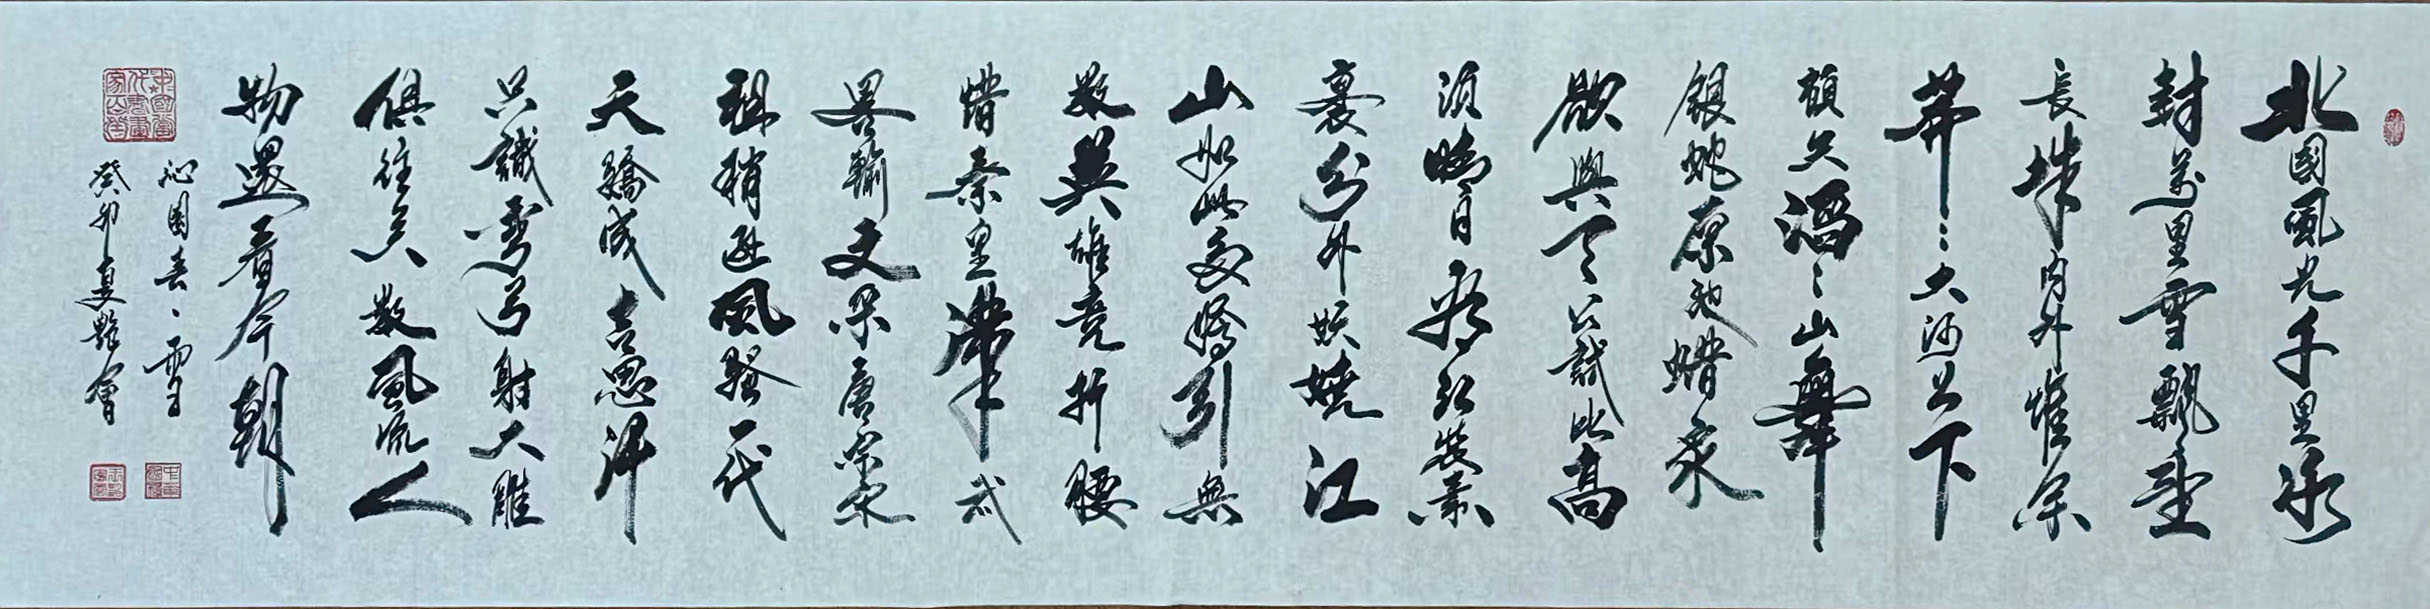 北國風光千里冰
封萬里雪飄望
長城內外惟余
莽〻大河上下
頓失滔〻山舞
銀蛇原馳蠟象
欲與天公試比高
須晴日看紅裝素
裹分外妖嬈江
山如此多嬌引無
數英雄競折腰
惜秦皇漢武
略輸文采唐宗宋
祖稍遜風騷一代
天驕成吉思汗
只識彎弓射大雕
俱往矣數風流人
物還看今朝
沁園春·雪
癸卯夏艷會